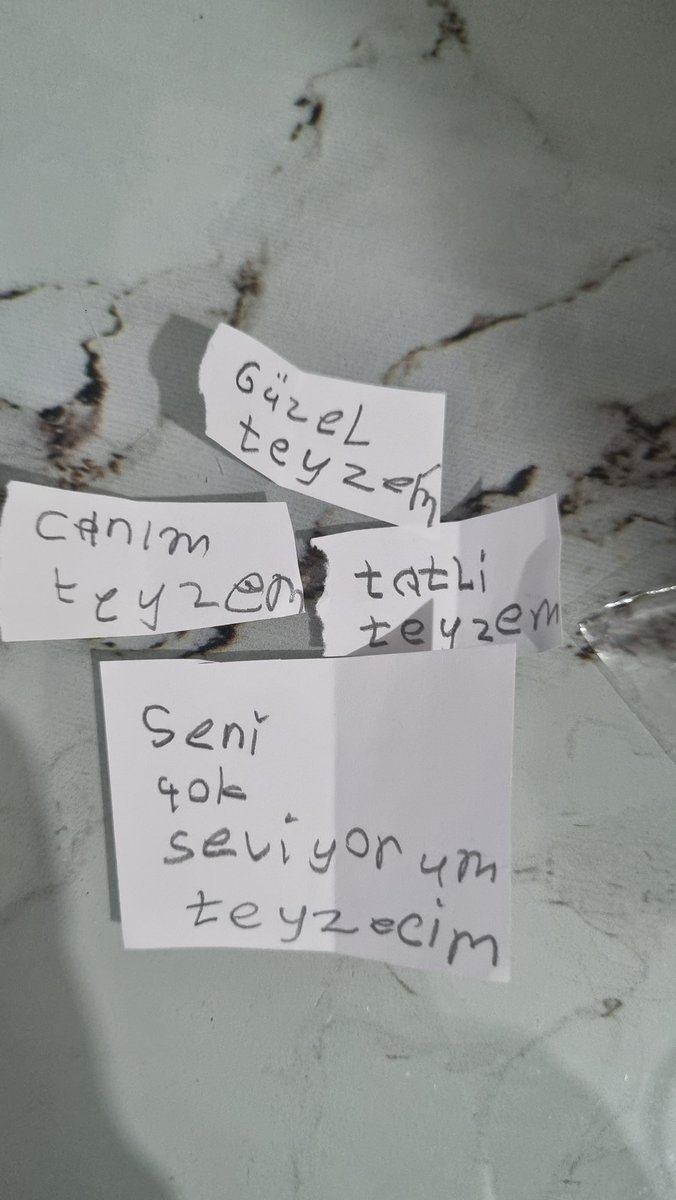 Güzel
teyzem
canım
teyzem
tatLi
teyzem
Seni
çok
seviyorum
teyzecim